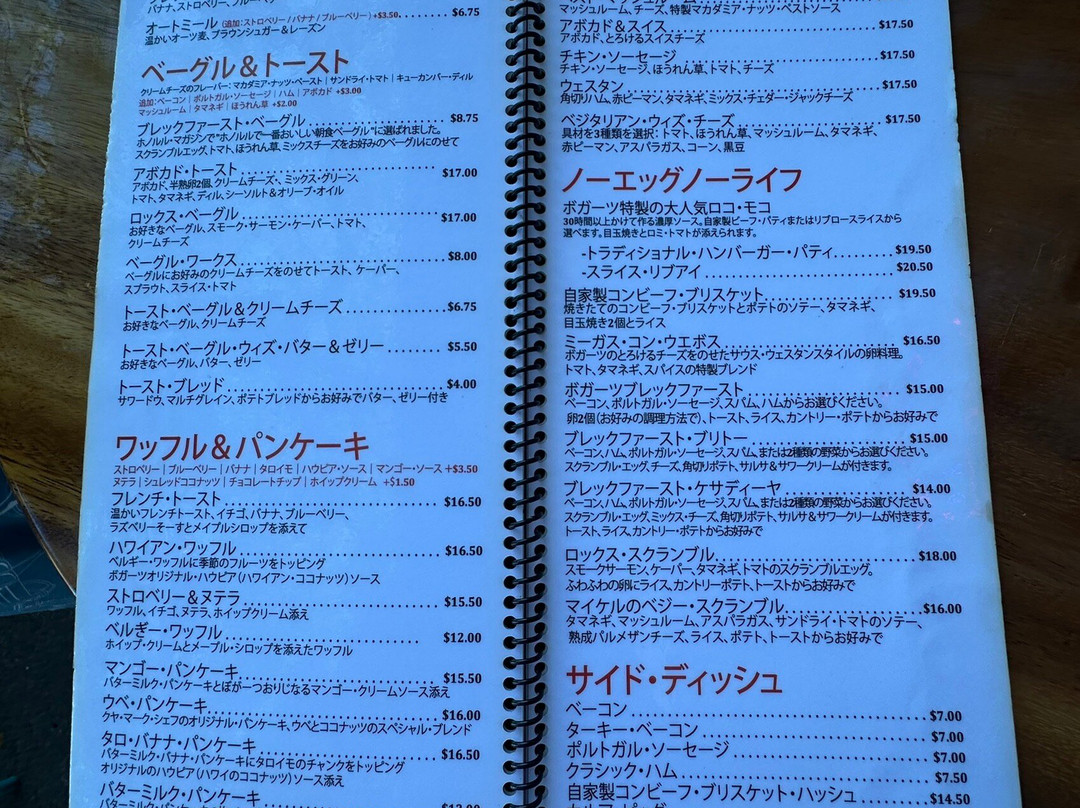 バナナ、ストロベリー、ブルーベリー
オートミール (追加：ストロベリー / バナナ / ブルーベリー) +$3.50 $6.75
温かいオーツ麦、ブラウンシュガー＆レーズン
ベーグル＆トースト
クリームチーズのフレーバー：マカダミア・ナッツ・ペースト｜サンドライ・トマト｜キューカンバー・ディル
追加：ベーコン｜ポルトガル・ソーセージ｜ハム｜アボカド +$3.00
マッシュルーム｜タマネギ｜ほうれん草 +$2.00
ブレックファースト・ベーグル $8.75
ホノルル・マガジンで"ホノルルで一番おいしい朝食ベーグル"に選ばれました。
スクランブルエッグ、トマト、ほうれん草、ミックスチーズをお好みのベーグルにのせて
アボカド・トースト $17.00
アボカド、半熟卵2個、クリームチーズ、ミックス・グリーン、
トマト、タマネギ、ディル、シーソルト＆オリーブ・オイル
ロックス・ベーグル $17.00
お好きなベーグル、スモーク・サーモン・ケーパー、トマト、
クリームチーズ
ベーグル・ワークス $8.00
ベーグルにお好みのクリームチーズをのせてトースト、ケーパー、
スプラウト、スライス・トマト
トースト・ベーグル＆クリームチーズ $6.75
お好きなベーグル、クリームチーズ
トースト・ベーグル・ウィズ・バター＆ゼリー $5.50
お好きなベーグル、バター、ゼリー
トースト・ブレッド $4.00
サワードウ、マルチグレイン、ポテトブレッドからお好みでバター、ゼリー付き
ワッフル＆パンケーキ
ストロベリー｜ブルーベリー｜バナナ｜タロイモ｜ハウピア・ソース｜マンゴー・ソース +$3.50
ヌテラ｜シュレッドココナッツ｜チョコレートチップ｜ホイップクリーム +$1.50
フレンチ・トースト $16.50
温かいフレンチトースト、イチゴ、バナナ、ブルーベリー、
ラズベリーそーすとメイプルシロップを添えて
ハワイアン・ワッフル $16.50
ベルギー・ワッフルに季節のフルーツをトッピング
ボガーツオリジナル・ハウピア（ハワイアン・ココナッツ）ソース
ストロベリー＆ヌテラ $15.50
ワッフル、イチゴ、ヌテラ、ホイップクリーム添え
ベルギー・ワッフル $12.00
ホイップ・クリームとメープル・シロップを添えたワッフル
マンゴー・パンケーキ $15.50
バターミルク・パンケーキとぼが一つおりじなるマンゴー・クリームソース添え
ウベ・パンケーキ $16.00
クヤ・マーク・シェフのオリジナル・パンケーキ、ウベとココナッツのスペシャル・ブレンド
タロ・バナナ・パンケーキ $16.50
バターミルク・バナナ・パンケーキにタロイモのチャンクをトッピング
オリジナルのハウピア（ハワイのココナッツ）ソース添え
バターミルク・パンケーキ
マッシュルーム、チーズ、特製マカダミア・ナッツ・ペストソース
アボカド＆スイス $17.50
アボカド、とろけるスイスチーズ
チキン・ソーセージ $17.50
チキン・ソーセージ、ほうれん草、トマト、チーズ
ウェスタン $17.50
角切りハム、赤ピーマン、タマネギ、ミックス・チェダー・ジャックチーズ
ベジタリアン・ウィズ・チーズ $17.50
具材を3種類を選択：トマト、ほうれん草、マッシュルーム、タマネギ、
赤ピーマン、アスパラガス、コーン、黒豆
ノーエッグノーライフ
ボガーツ特製の大人気ロコ・モコ
30時間以上かけて作る濃厚ソース。自家製ビーフ・パティまたはリブロースライスから
選べます。目玉焼きとロミ・トマトが添えられます。
-トラディショナル・ハンバーガー・パティ $19.50
-スライス・リブアイ $20.50
自家製コンビーフ・ブリスケット $19.50
焼きたてのコンビーフ・ブリスケットとポテトのソテー、タマネギ、
目玉焼き2個とライス
ミーガス・コン・ウエボス $16.50
ボガーツのとろけるチーズをのせたサウス・ウェスタンスタイルの卵料理。
トマト、タマネギ、スパイスの特製ブレンド
ボガーツブレックファースト $15.00
ベーコン、ポルトガル・ソーセージ、スパム、ハムからお選びください。
卵2個（お好みの調理方法で）、トースト、ライス、カントリー・ポテトからお好みで
ブレックファースト・ブリトー $15.00
ベーコン、ハム、ポルトガル・ソーセージ、スパム、または2種類の野菜からお選びください。
スクランブル・エッグ、チーズ、角切りポテト、サルサ＆サワークリームが付きます。
ブレックファースト・ケサディーヤ $14.00
ベーコン、ハム、ポルトガル・ソーセージ、スパム、または2種類の野菜からお選びください。
スクランブル・エッグ、ミックス・チーズ、角切りポテト、サルサ＆サワークリームが付きます。
トースト、ライス、カントリー・ポテトからお好みで
ロックス・スクランブル $18.00
スモークサーモン、ケーパー、タマネギ、トマトのスクランブルエッグ。
ふわふわの卵にライス、カントリーポテト、トーストからお好みで
マイケルのベジー・スクランブル $16.00
タマネギ、マッシュルーム、アスパラガス、サンドライ・トマトのソテー、
熟成パルメザンチーズ、ライス、ポテト、トーストからお好みで
サイド・ディッシュ
ベーコン $7.00
ターキー・ベーコン $7.00
ポルトガル・ソーセージ $7.00
クラシック・ハム $7.50
自家製コンビーフ・ブリスケット・ハッシュ $14.50